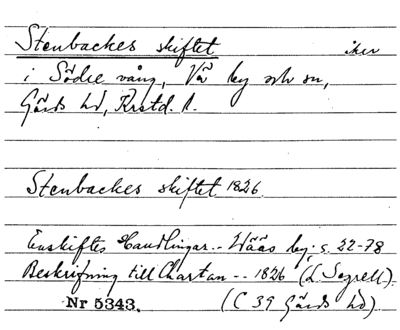 Stenbackes skiftet åker
i Södre vång, Vä by och sn,
Gärds hd, Krstd. l.
Stenbackes skiftet 1826.
Enskiftes Handlingar.. Wääs by. s. 22-78
Beskrifning till Chartan -- 1826 (L. Segrell).
Nr 5343. (C 39 Gärds hd).